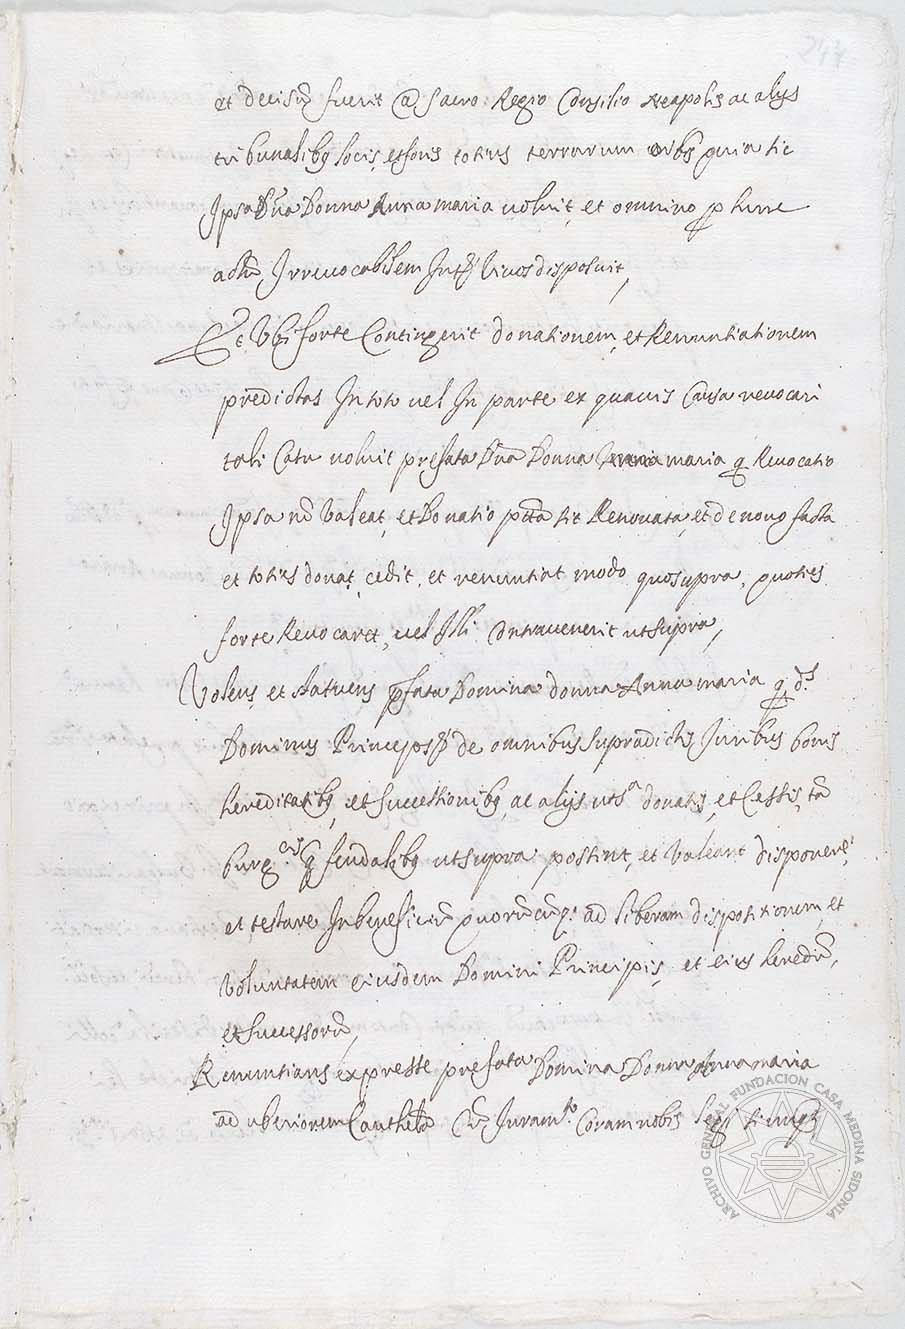 244
et decisũ fuerit @ Sacro Regio Consilio Neapolis ac alijs
tribunalibq locis, et foris totius terrarum orbis quia sic
Ipsa Dña Donna Anna maria voluit, et omnino p hunc
actũ Irrevocabilem Inter vivos disposuit,
Et Ubi forte Contingerit donationem, et Renuntiationem
predictas In toto vel In parte ex quavis Causa revocari
tali Casu voluit prefata Dña Donna Anna maria q Revocatio
Ipsa nõ Valeat, et Donatio ptta sit Renovata, et de novo facta
et toties donat, cedit, et renuntiat modo quo supra, quoties
forte Revocaret, vel Illi Contravenerit ut supra,
Volens et statuens pfata Domina donna Anna maria q ds
Dominus Princeps de omnibus supradictis Juribus bonis
hereditatibq, et Successionibq, ac alijs ut sa donatis, et Cessis, tã
burgcis q feudalibq ut supra possint, et Valeant disponere,
et testare In beneficiũ quorũcũq ad liberam dispositionem, et
Voluntatem eiusdem Domini Principis, et eius heredũ,
et Successorũ,
Renuntians expresse prefata Domina Donna Anna maria
ad uberiorem Cauthelã Cũ Juramto Coram nobis legi
ARCHIVO GENERAL FUNDACION CASA MEDINA SIDONIA